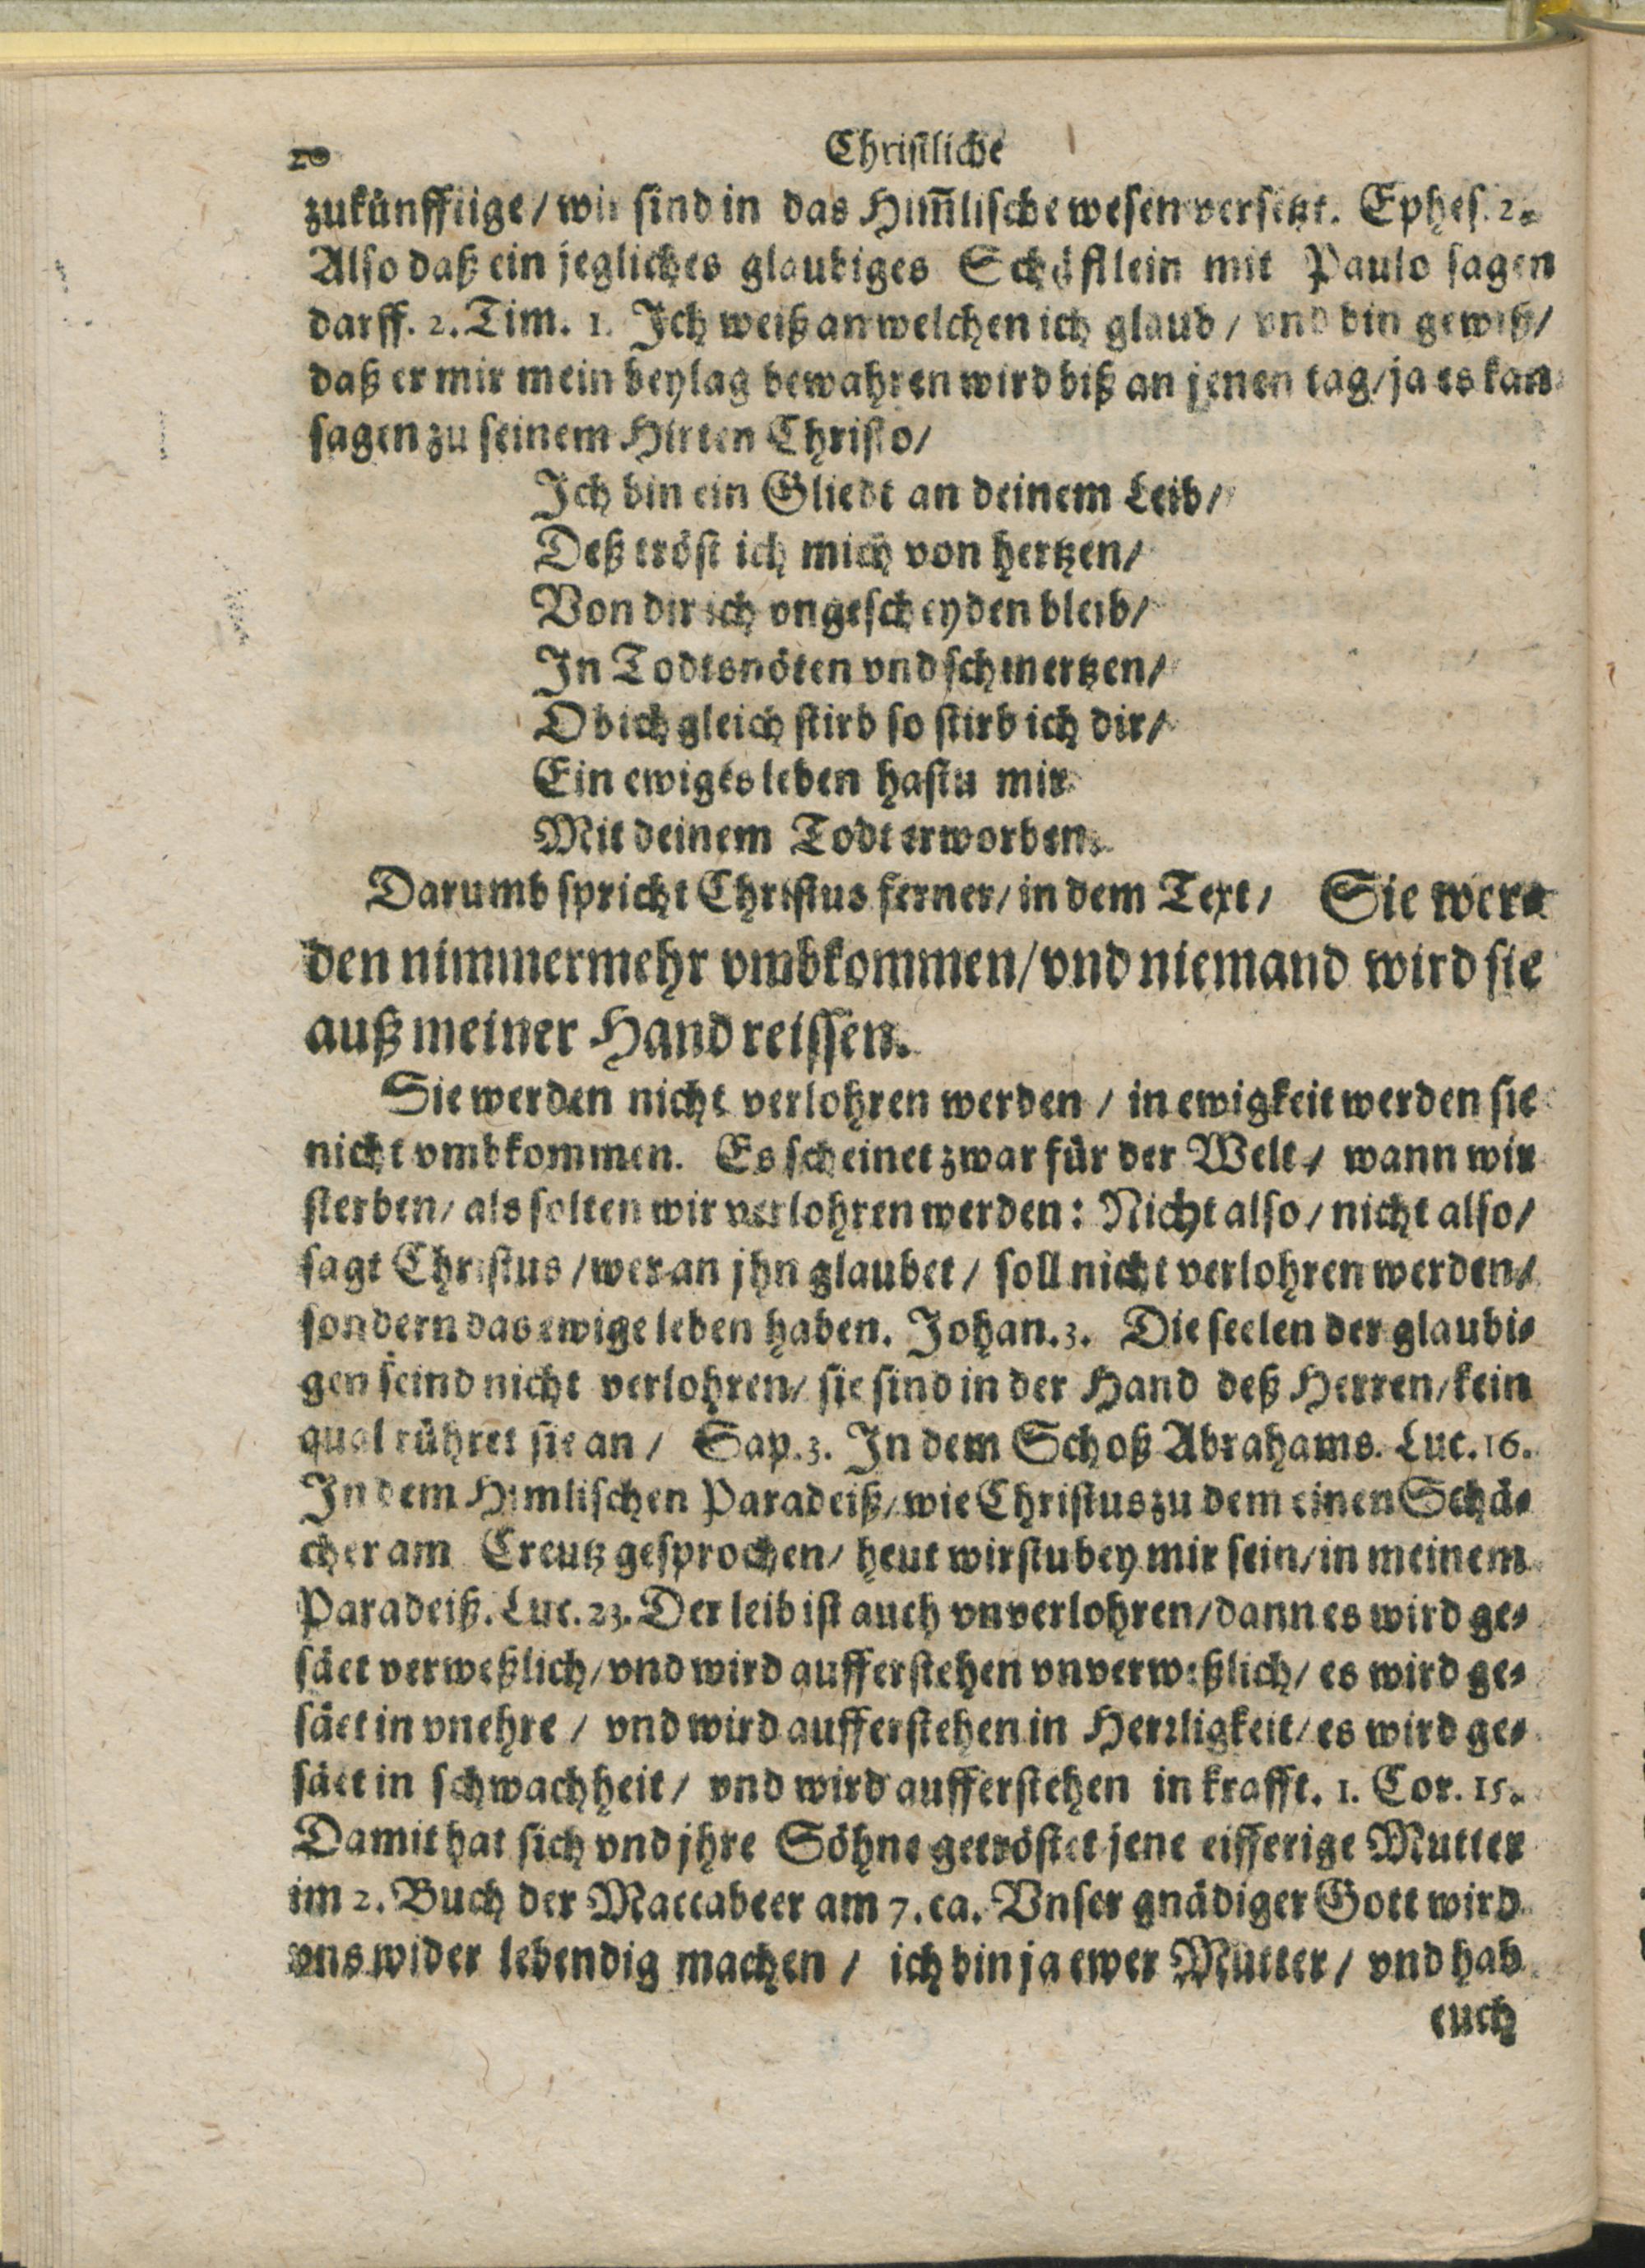 20 Christliche
zukünfftige / wir sind in das Him̃lische wesen versetzt. Ephes. 2.
Also daß ein jegliches glaubiges Schäfflein mit Paulo sagen
darff. 2. Tim. 1. Ich weiß an welchen ich glaub / vnd bin gewiß /
daß er mir mein beylag bewahren wird biß an jenen tag / ja es kan
sagen zu seinem Hirten Christo /
Ich bin ein Gliedt an deinem Leib /
Deß tröst ich mich von hertzen /
Von dir ich vngescheyden bleib /
In Todtsnöten vnd schmertzen /
Ob ich gleich stirb so stirb ich dir /
Ein ewiges leben hastu mir
Mit deinem Todt erworben.
Darumb spricht Christus ferner / in dem Text / Sie wer⸗
den nimmermehr vmbkommen / vnd niemand wird sie
auß meiner Hand reissen.
Sie werden nicht verlohren werden / in ewigkeit werden sie
nicht vmbkommen. Es scheinet zwar für der Welt / wann wir
sterben / als solten wir verlohren werden: Nicht also / nicht also /
sagt Christus / wer an jhn glaubet / soll nicht verlohren werden /
sondern das ewige leben haben. Johan. 3. Die seelen der glaubi⸗
gen seind nicht verlohren / sie sind in der Hand deß Herren / kein
qual rühret sie an / Sap. 3. In dem Schoß Abrahams. Luc. 16.
In dem Himlischen Paradeiß / wie Christus zu dem einen Schä⸗
cher am Creutz gesprochen / heut wirstu bey mir sein / in meinem
Paradeiß. Luc. 23. Der leib ist auch vnverlohren / dann es wird ge⸗
säet verweßlich / vnd wird aufferstehen vnverweßlich / es wird ge⸗
säet in vnehre / vnd wird aufferstehen in Herrligkeit / es wird ge⸗
säet in schwachheit / vnd wird aufferstehen in krafft. 1. Cor. 15.
Damit hat sich vnd jhre Söhne getröstet jene eifferige Mutter
im 2. Buch der Maccabeer am 7. ca. Vnser gnädiger Gott wird
vns wider lebendig machen / ich bin ja ewer Mutter / vnd hab
euch